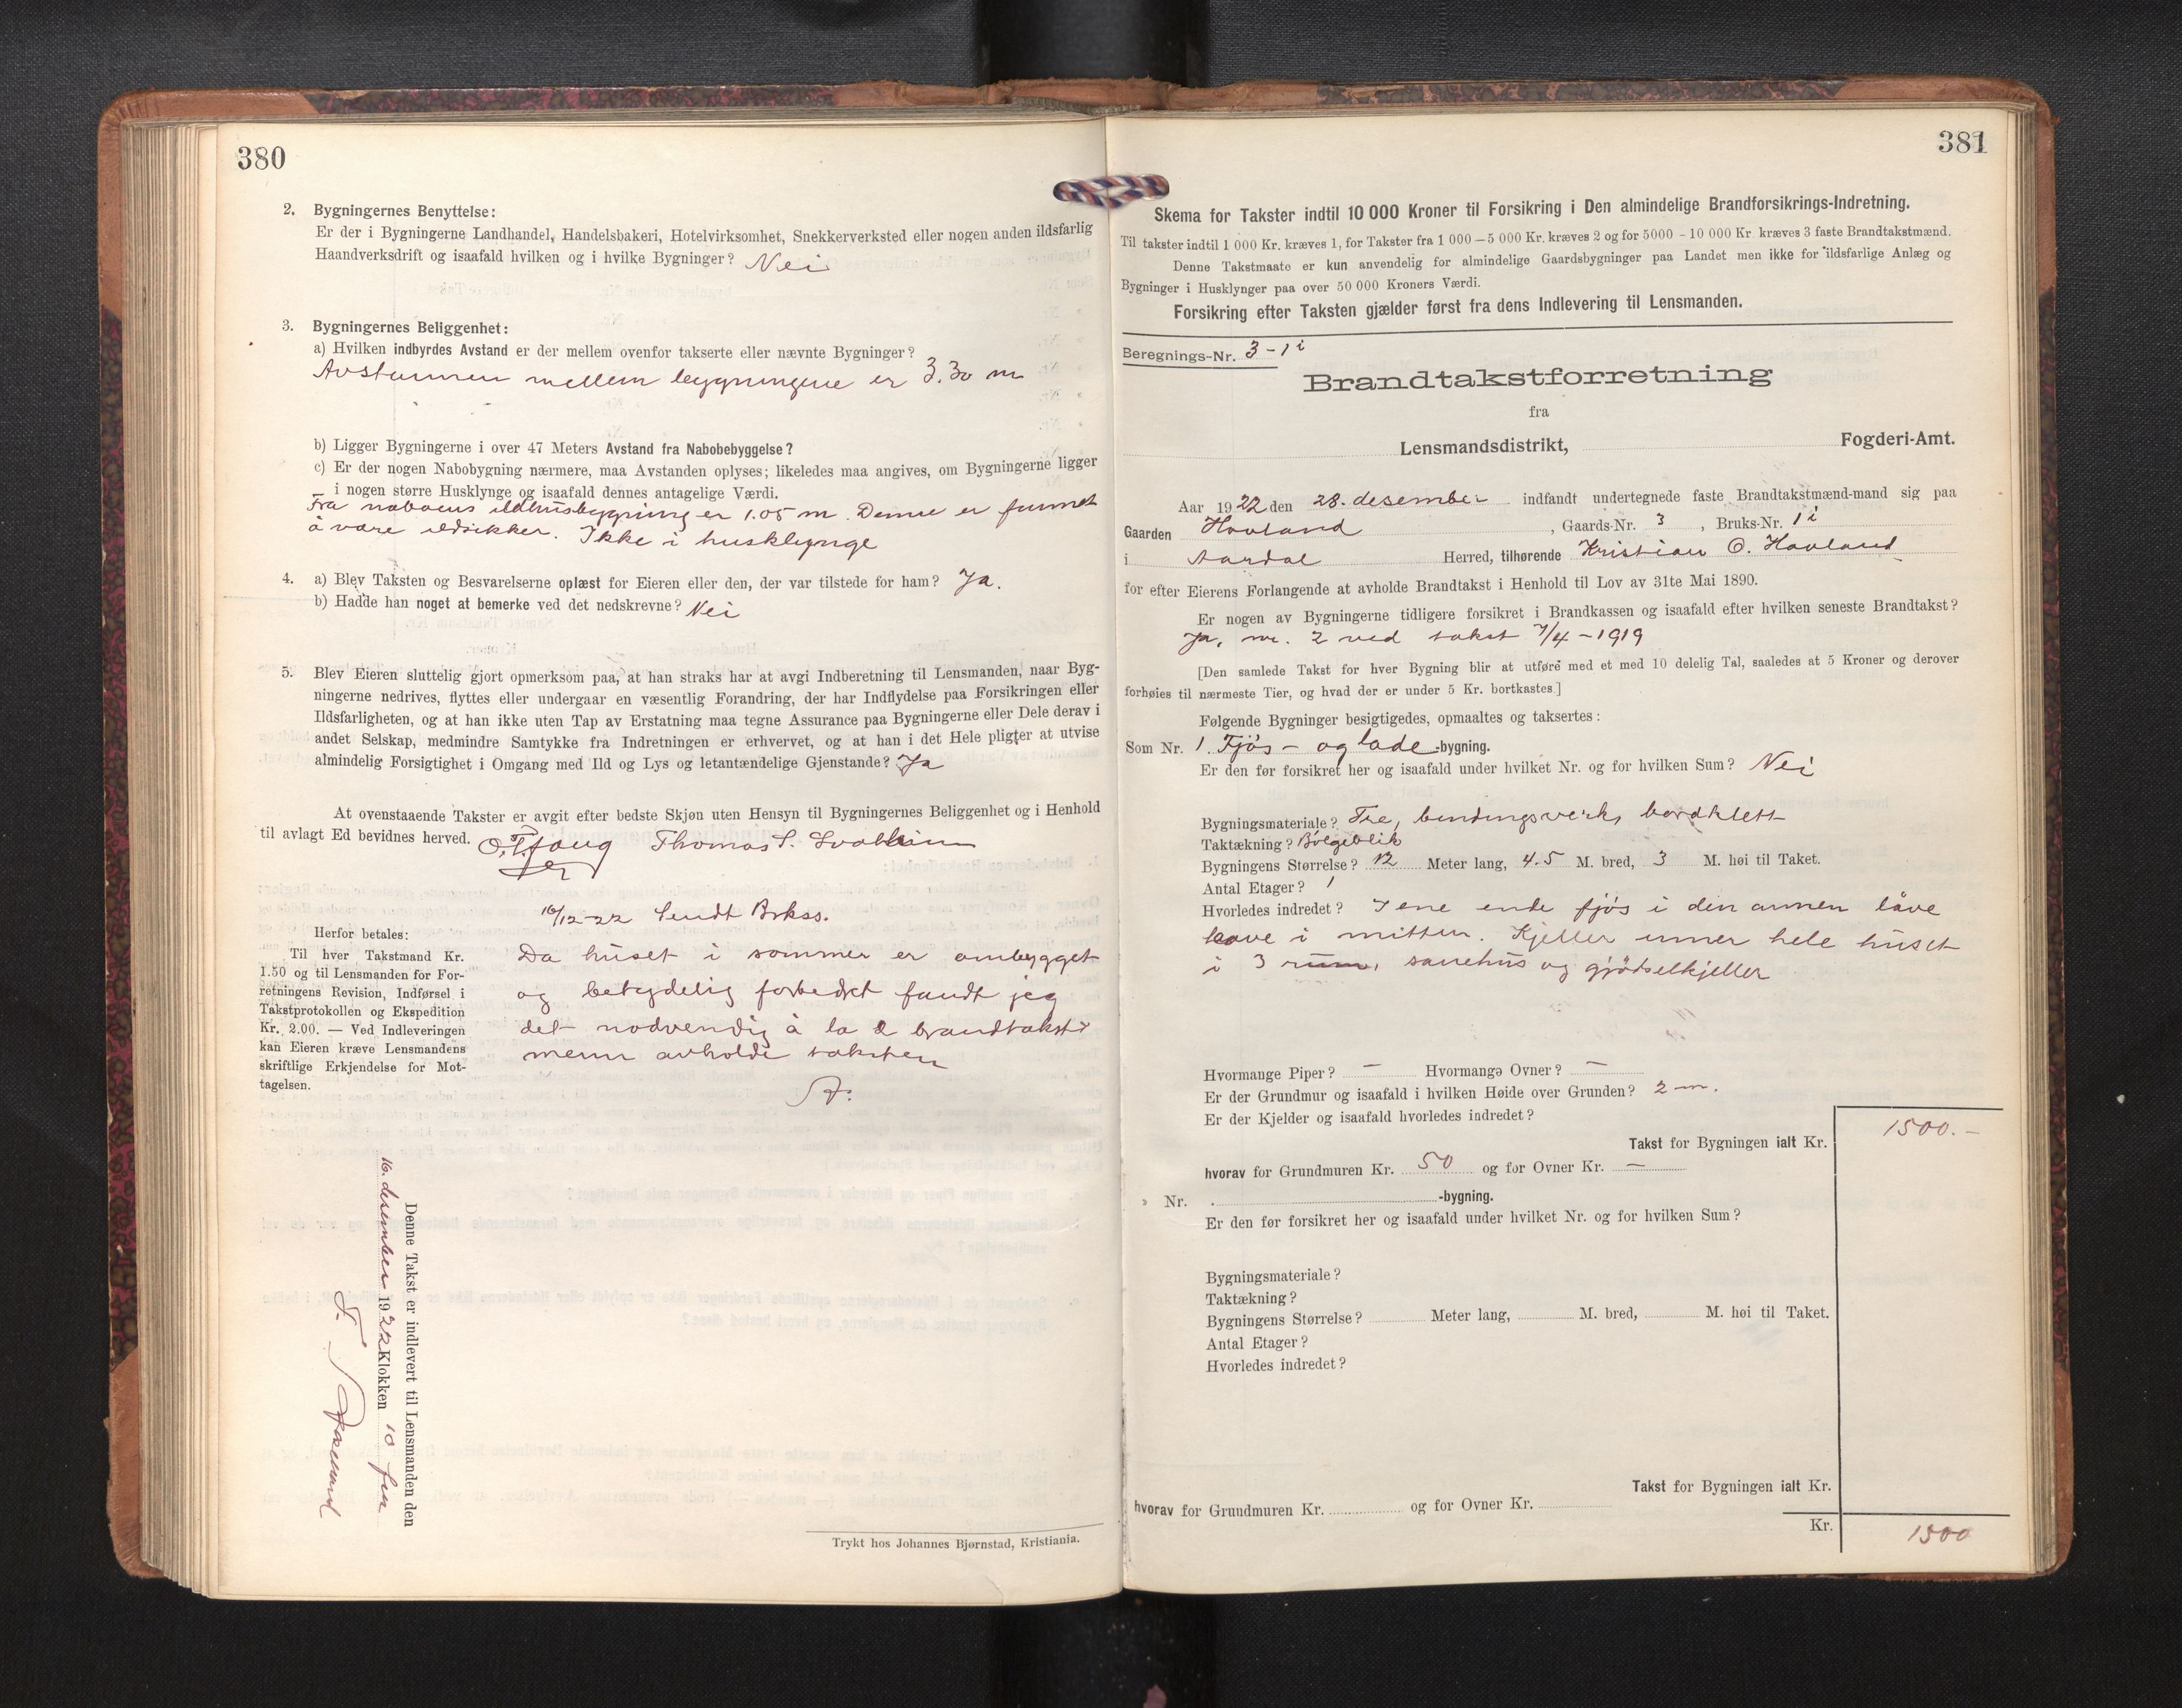 380
2. Bygningernes Benyttelse:
Er der i Bygningerne Landhandel, Handelsbakeri, Hotelvirksomhet, Snekkerverksted eller nogen anden ildsfarlig
Haandverksdrift og isaafald hvilken og i hvilke Bygninger? Nei
3. Bygningernes Beliggenhet:
a) Hvilken indbyrdes Avstand er der mellem ovenfor takserte eller nævnte Bygninger?
Avstannen mellem bygningene er 3.30 m
b) Ligger Bygningerne i over 47 Meters Avstand fra Nabobebyggelse?
c) Er der nogen Nabobygning nærmere, maa Avstanden oplyses; likeledes maa angives, om Bygningerne ligger
i nogen større Husklynge og isaafald dennes antagelige Værdi.
Fra naboens ildhusbygning er 1.05 m. Denne er funnet
å være ildsikker. Ikke i husklynge
4. a) Blev Taksten og Besvarelserne oplæst for Eieren eller den, der var tilstede for ham? Ja.
b) Hadde han noget at bemerke ved det nedskrevne? Nei
5. Blev Eieren sluttelig gjort opmerksom paa, at han straks har at avgi Indberetning til Lensmanden, naar Byg-
ningerne nedrives, flyttes eller undergaar en væsentlig Forandring, der har Indflydelse paa Forsikringen eller
Ildsfarligheten, og at han ikke uten Tap av Erstatning maa tegne Assurance paa Bygningerne eller Dele derav i
andet Selskap, medmindre Samtykke fra Indretningen er erhvervet, og at han i det Hele pligter at utvise
almindelig Forsigtighet i Omgang med Ild og Lys og letantændelige Gjenstande? Ja
At ovenstaaende Takster er avgit efter bedste Skjøn uten Hensyn til Bygningernes Beliggenhet og i Henhold
til avlagt Ed bevidnes herved. Thomas S.
16/12-22 Sendt Brkss.
Herfor betales:
Til hver Takstmand Kr.
1.50 og til Lensmanden for For-
retningens Revision, Indførsel i
Takstprotokollen og Ekspedition
Kr. 2.00. — Ved Indleveringen
kan Eieren kræve Lensmandens
skriftlige Erkjendelse for Mot-
tagelsen.
Da huset i sommer er ombygget
og betydelig forbedret fandt jeg
det nødvendig å la 2 brandtakst-
menn avholde taksten
Denne Takst er indlevert til Lensmanden den
16. desember 1922 Klokken 10 fm
Trykt hos Johannes Bjørnstad, Kristiania.
381
Skema for Takster indtil 10 000 Kroner til Forsikring i Den almindelige Brandforsikrings-Indretning.
Til takster indtil 1 000 Kr. kræves 1, for Takster fra 1 000—5 000 Kr. kræves 2 og for 5000 - 10 000 Kr kræves 3 faste Brandtakstmænd.
Denne Takstmaate er kun anvendelig for almindelige Gaardsbygninger paa Landet men ikke for ildsfarlige Anlæg og
Bygninger i Husklynger paa over 50 000 Kroners Værdi.
Forsikring efter Taksten gjælder først fra dens Indlevering til Lensmanden.
Beregnings-Nr. 3-1 i
Brandtakstforretning
fra
Lensmandsdistrikt, Fogderi-Amt.
Aar 1922 den 28. desember indfandt undertegnede faste Brandtakstmænd-mand sig paa
Gaarden Hovland, Gaards-Nr. 3, Bruks-Nr. 1 i
i Aardal Herred, tilhørende Kristian O. Hovland
for efter Eierens Forlangende at avholde Brandtakst i Henhold til Lov av 31te Mai 1890.
Er nogen av Bygningerne tidligere forsikret i Brandkassen og isaafald efter hvilken seneste Brandtakst?
Ja, nr. 2 ved takst 7/4-1919
[Den samlede Takst for hver Bygning blir at utføre med et med 10 delelig Tal, saaledes at 5 Kroner og derover
forhøies til nærmeste Tier, og hvad der er under 5 Kr. bortkastes.]
Følgende Bygninger besigtigedes, opmaaltes og taksertes:
Som Nr. 1. Fjøs- og lade-bygning.
Er den før forsikret her og isaafald under hvilket Nr. og for hvilken Sum? Nei
Bygningsmateriale? Tre, bindingsverk, bordklett
Taktækning? Bølgeblik
Bygningens Størrelse? 12 Meter lang, 4.5 M. bred, 3 M. høi til Taket.
Antal Etager? 1
Hvorledes indredet? I ene ende fjøs i den annen låve
i mitten. Kjeller unner hele huset
i 3 rum, sauehus og gjødselkjeller
Hvormange Piper? — Hvormange Ovner? —
Er der Grundmur og isaafald i hvilken Høide over Grunden? 2 m.
Er der Kjelder og isaafald hvorledes indredet?
Takst for Bygningen ialt Kr. 1500.-
hvorav for Grundmuren Kr. 50 og for Ovner Kr. —
» Nr. -bygning.
Er den før forsikret her og isaafald under hvilket Nr. og for hvilken Sum?
Bygningsmateriale?
Taktækning?
Bygningens Størrelse? Meter lang, M. bred, M. høi til Taket.
Antal Etager?
Hvorledes indredet?
Takst for Bygningen ialt Kr.
hvorav for Grundmuren Kr. og for Ovner Kr.
Kr. 1500